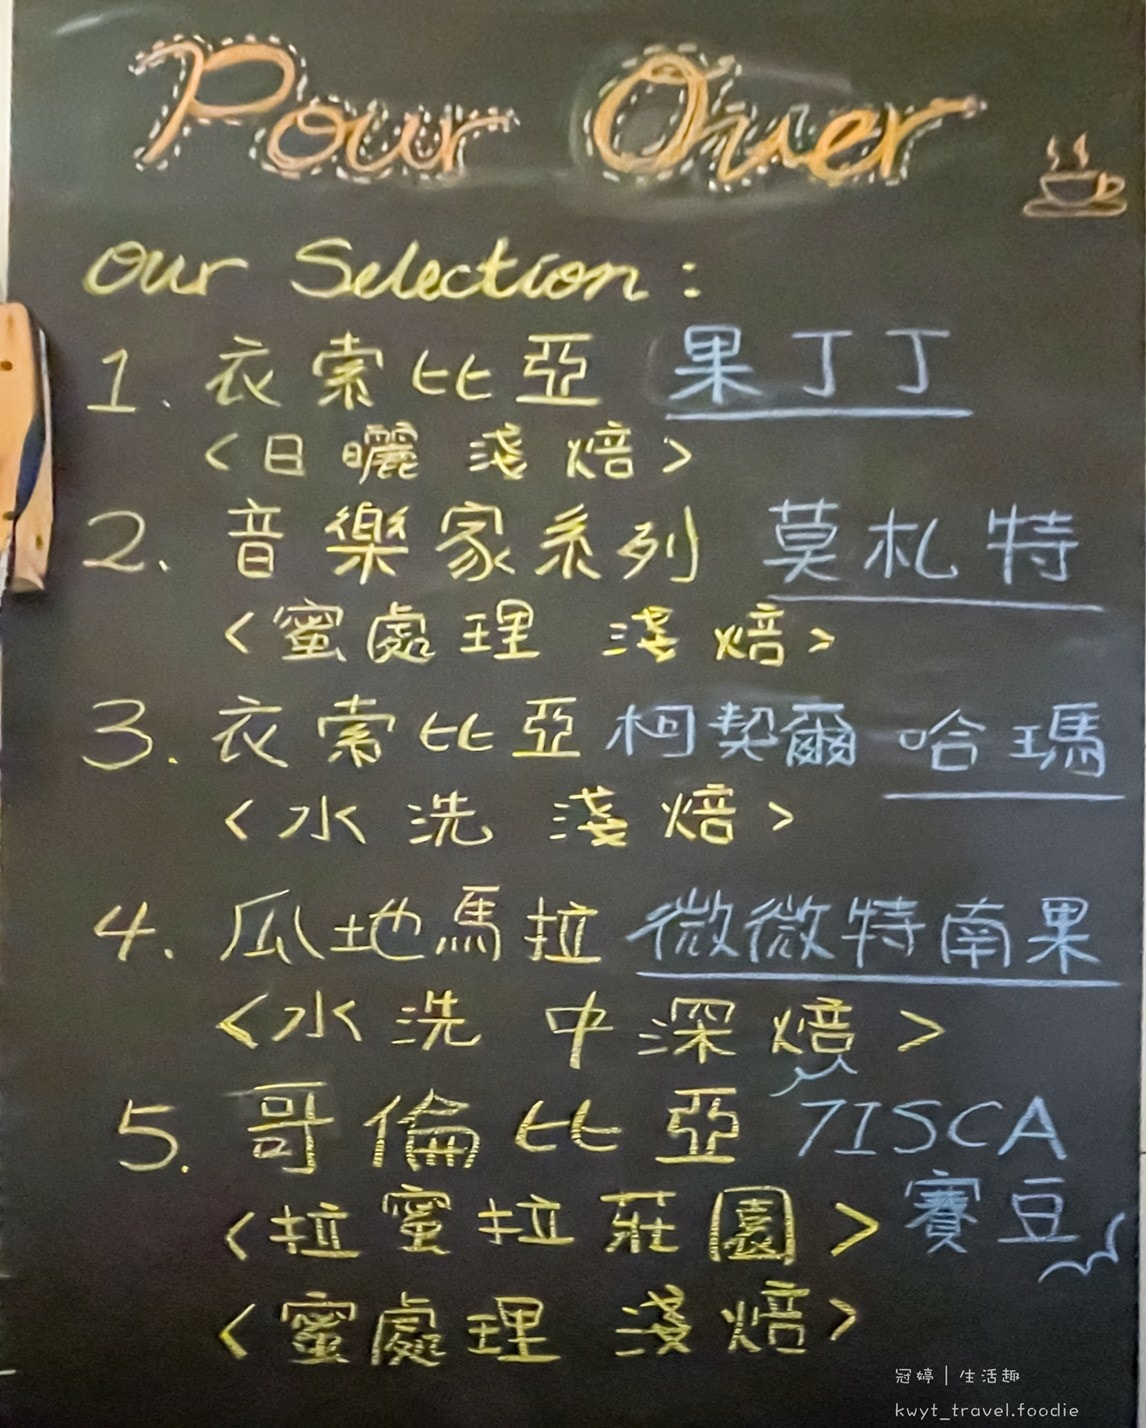 Pour Over
Our Selection:
1. 衣索比亞 果丁丁
<日曬 淺焙>
2. 音樂家系列 莫札特
<蜜處理 淺焙>
3. 衣索比亞 柯契爾 哈瑪
<水洗 淺焙>
4. 瓜地馬拉 微微特南果
<水洗 中深焙>
5. 哥倫比亞 7ISCA
<拉蜜拉莊園> 賽豆
<蜜處理 淺焙>
冠婷｜生活趣
kwyt_travel.foodie